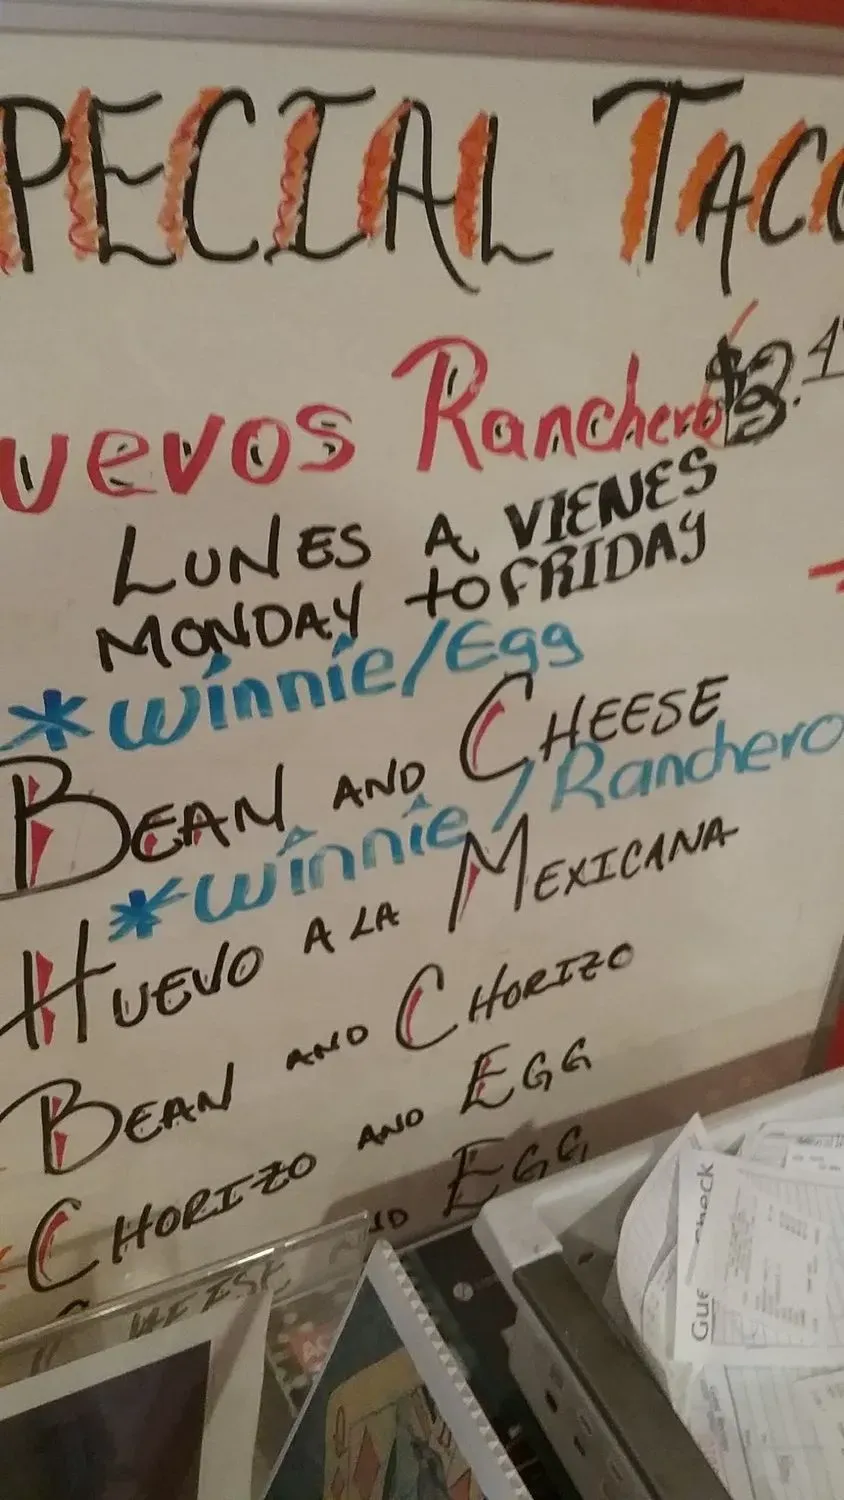 PECIAL TACO
uevos Ranchero $3.4
LUNES A VIENES
MONDAY to FRIDAY
*winnie/Egg
BEAN AND CHEESE
*winnie/Ranchero
HUEVO A LA MEXICANA
BEAN AND CHORIZO
CHORIZO AND EGG
ND EGG
CHEESE
Gue Check